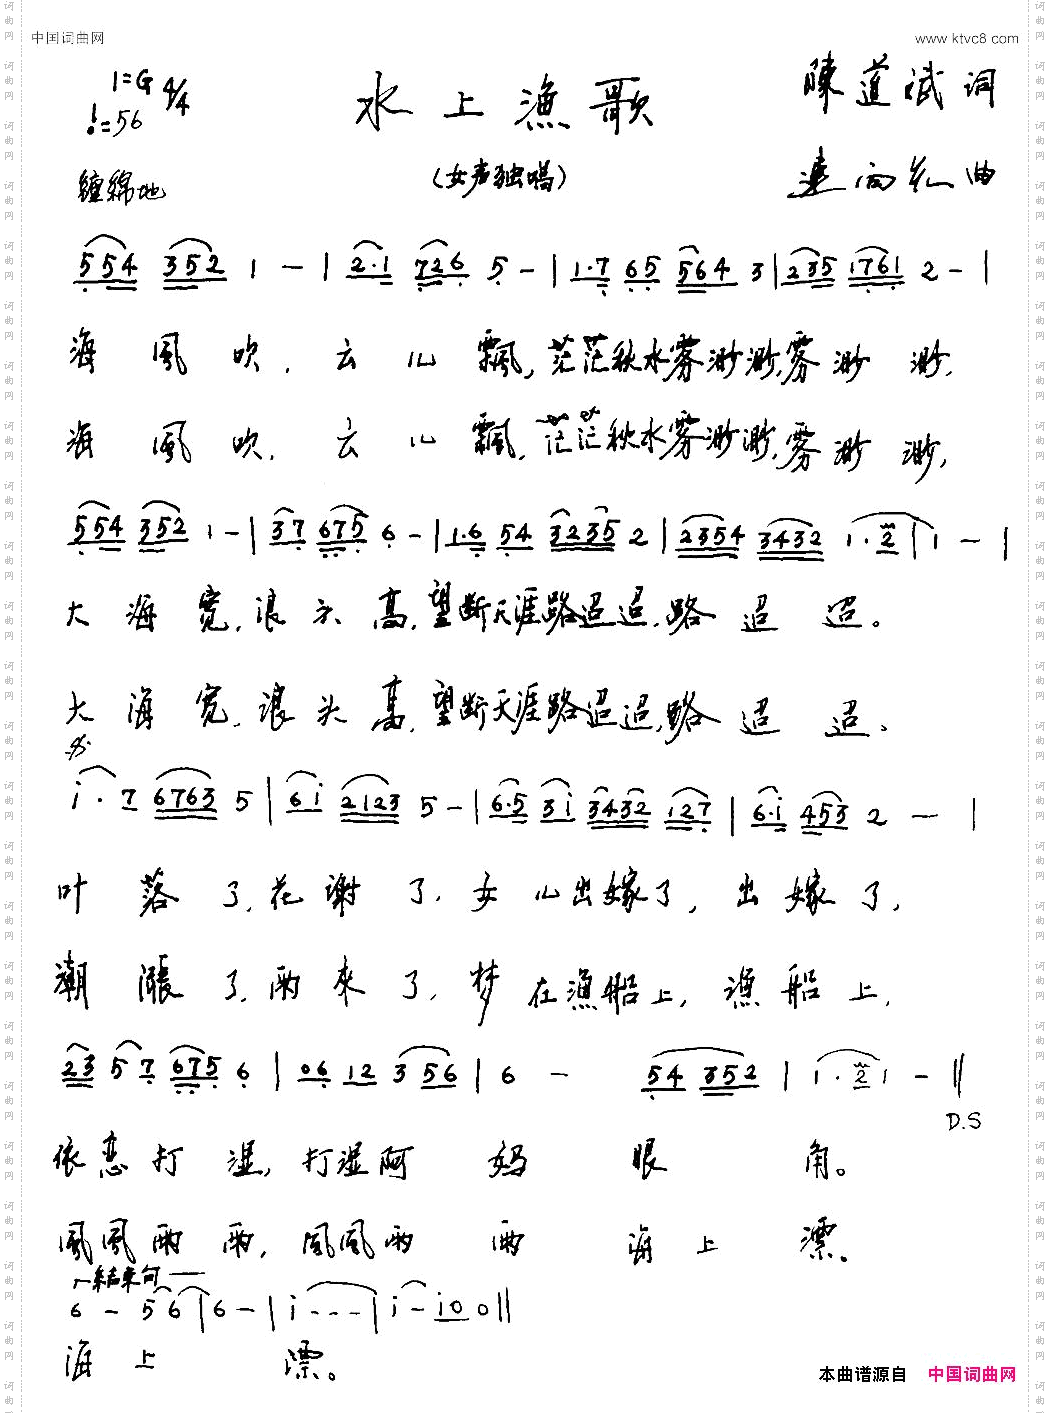 中国词曲网
www.ktvc8.com
1=G 4/4
水上漁歌
陳道斌词
♩=56
缠綿地
(女声独唱)
連向红曲
554 352 1 - | 2·1 726 5 - | 1·7 65 564 3 | 235 1761 2 - |
海風吹,云儿飄,茫茫秋水雾渺渺,雾渺渺,
海風吹,云儿飄,茫茫秋水雾渺渺,雾渺渺,
554 352 1 - | 37 675 6 - | 1·6 54 3235 2 | 2354 3432 1·2 | 1 - |
大海宽,浪头高,望断天涯路迢迢,路迢迢。
大海宽,浪头高,望断天涯路迢迢,路迢迢。
i·7 6763 5 | 6i 2123 5 - | 6·5 3i 3432 127 | 6·i 453 2 - |
叶落了,花谢了,女儿出嫁了,出嫁了,
潮漲了,雨來了,梦在漁船上,漁船上,
23 57 675 6 | 06 12 3 56 | 6 - 54 352 | 1·2 1 - ‖
D.S
依恋打湿,打湿阿妈眼角。
風風雨雨,風風雨雨海上漂。
结束句
6 - 5 6 | 6 - | i - - - | i - i0 0 ‖
海上漂。
本曲谱源自 中国词曲网